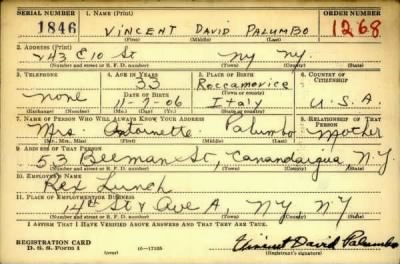 SERIAL NUMBER 1. NAME (Print) ORDER NUMBER
1846 VINCENT DAVID PALUMBO 1268
(First) (Middle) (Last)
2. ADDRESS (Print)
243 E 10 St NY NY.
(Number and street or R. F. D. number) (Town) (County) (State)
3. TELEPHONE 4. AGE IN YEARS 5. PLACE OF BIRTH 6. COUNTRY OF CITIZENSHIP
33 Roccamorice
none DATE OF BIRTH
11-7-06 Italy U.S.A.
(Exchange) (Number) (Mo.) (Day) (Yr.) (State or country)
7. NAME OF PERSON WHO WILL ALWAYS KNOW YOUR ADDRESS 8. RELATIONSHIP OF THAT PERSON
Mrs. Antoinette Palumbo Mother
(Mr., Mrs., Miss) (First) (Middle) (Last)
9. ADDRESS OF THAT PERSON
53 Beeman St, Canandaigua, N.Y
(Number and street or R. F. D. number) (Town) (County) (State)
10. EMPLOYER'S NAME
Rex Lunch
11. PLACE OF EMPLOYMENT OR BUSINESS
14th St & Ave A, NY NY
(Number and street or R. F. D. number) (Town) (County) (State)
I AFFIRM THAT I HAVE VERIFIED ABOVE ANSWERS AND THAT THEY ARE TRUE.
REGISTRATION CARD
D. S. S. Form 1 (over) 16—17105 Vincent David Palumbo
(Registrant's signature)